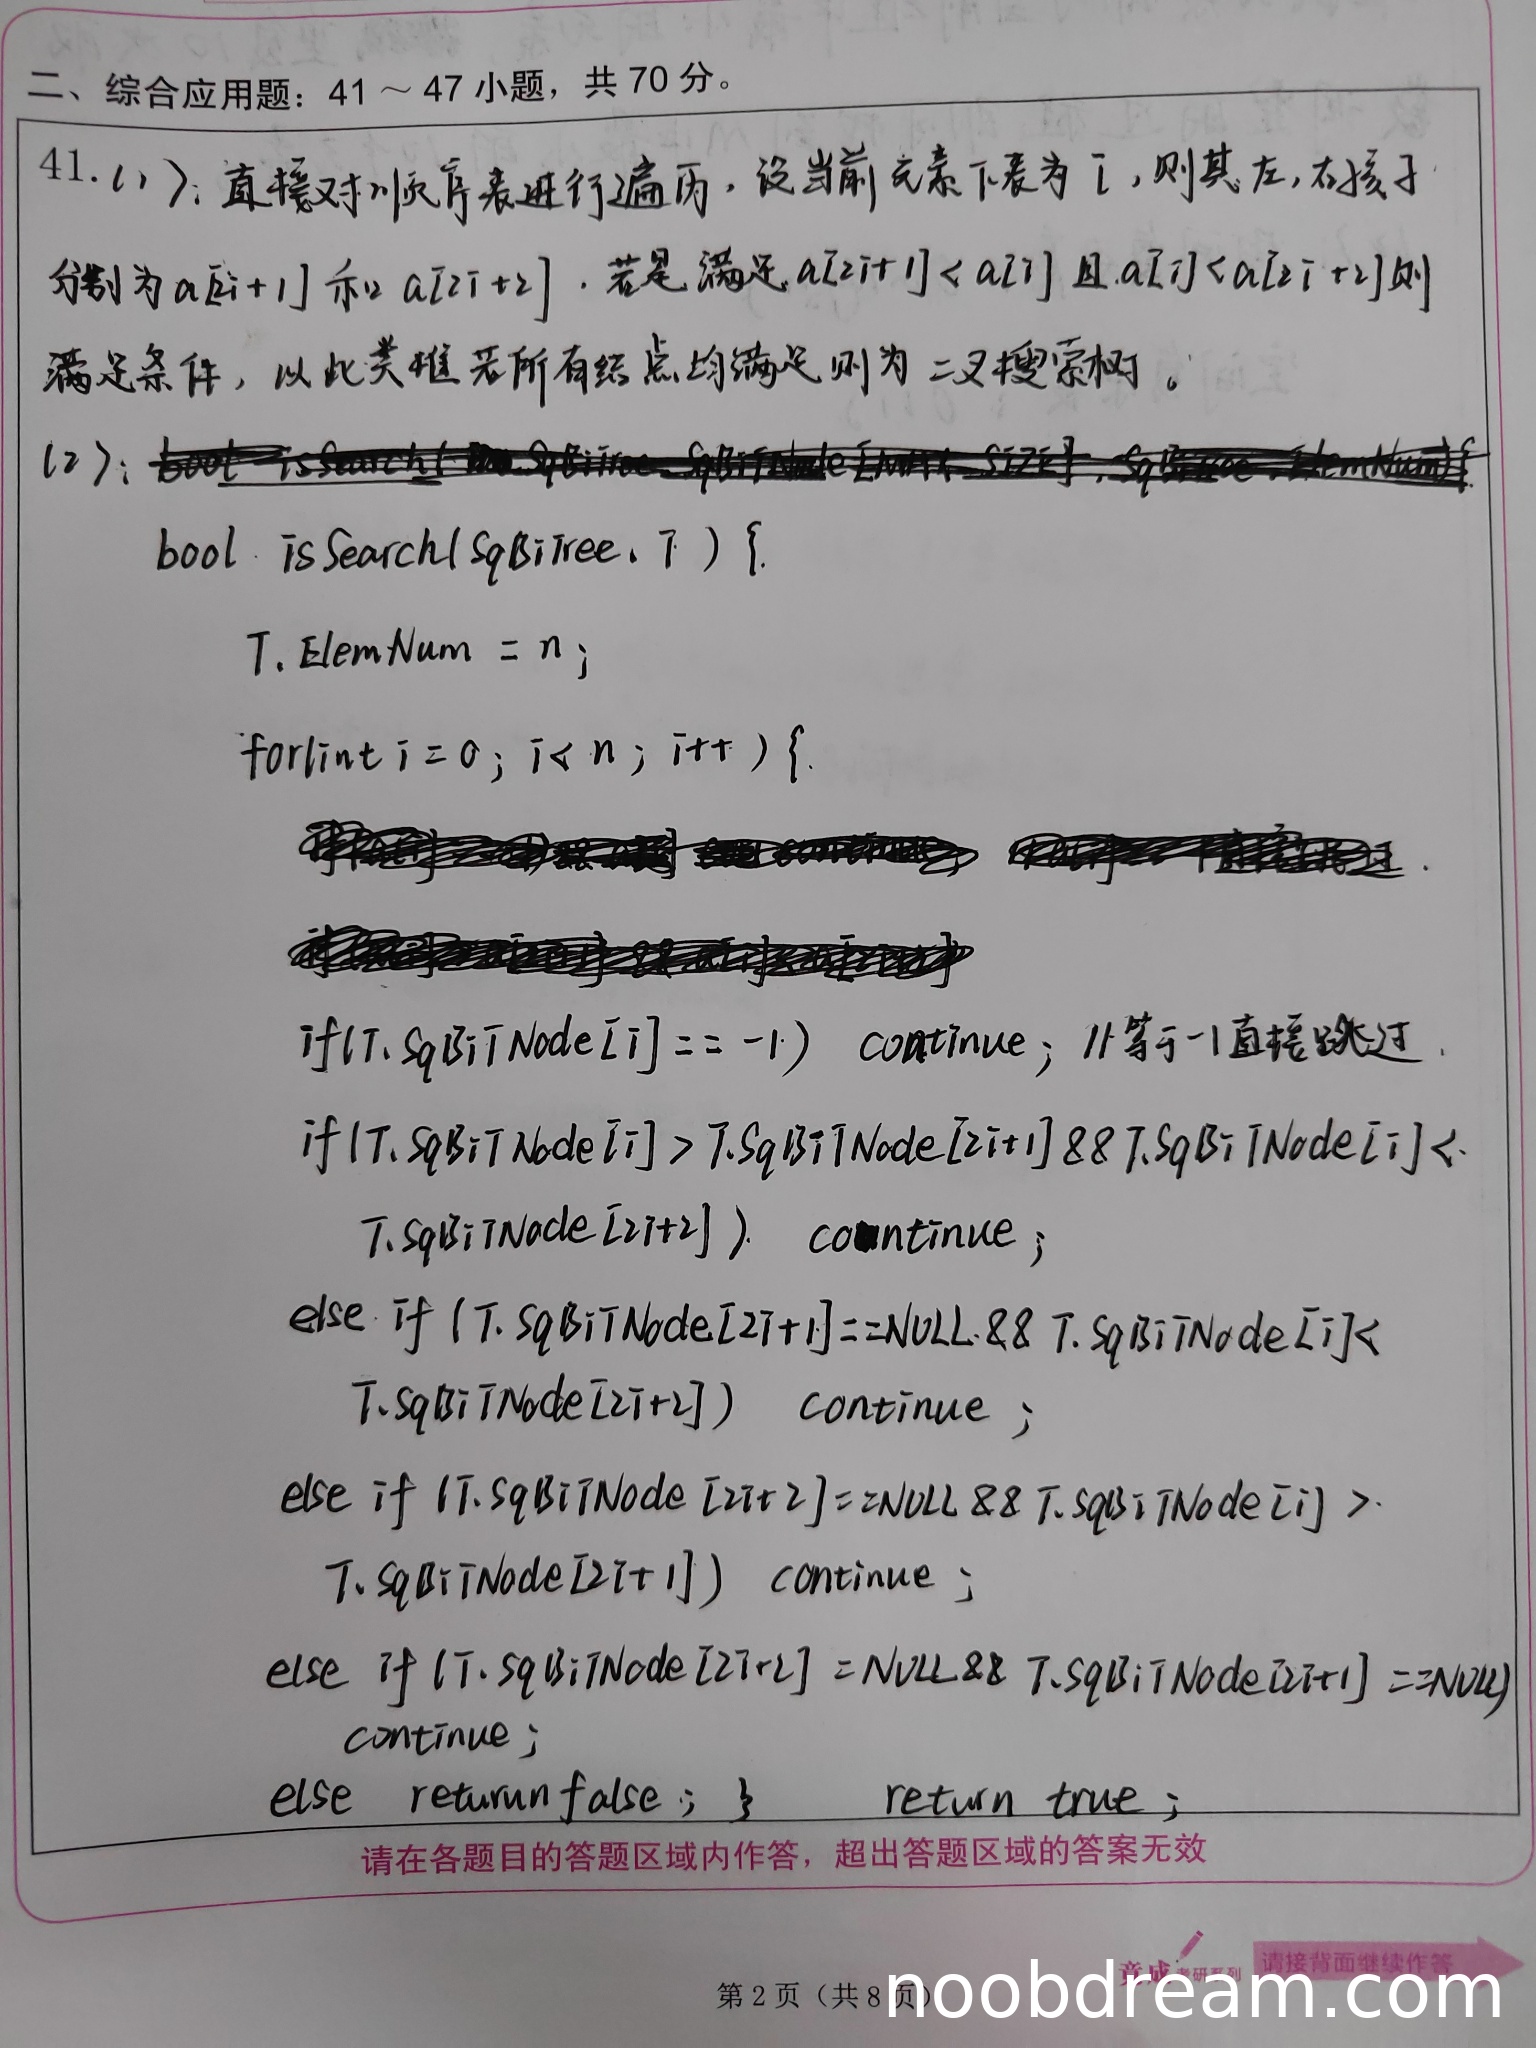 二、综合应用题：41～47小题，共70分。
41.(1): 直接对顺序表进行遍历，设当前元素下表为i，则其左，右孩子
分别为a[2i+1]和a[2i+2]．若是满足a[2i+1]<a[i]且a[i]<a[2i+2]则
满足条件，以此类推若所有结点均满足则为二叉搜索树。
(2):
bool isSearch(SqBiTree. T){
T.ElemNum = n;
for(int i=0; i<n; i++){
if(T.SqBiTNode[i]==-1) continue; //等于-1直接跳过.
if(T.SqBiTNode[i]>T.SqBiTNode[2i+1]&&T.SqBiTNode[i]<
T.SqBiTNode[2i+2]) continue;
else if(T.SqBiTNode[2i+1]==NULL&&T.SqBiTNode[i]<
T.SqBiTNode[2i+2]) continue;
else if(T.SqBiTNode[2i+2]==NULL&&T.SqBiTNode[i]>
T.SqBiTNode[2i+1]) continue;
else if(T.SqBiTNode[2i+2]=NULL&&T.SqBiTNode[2i+1]==NULL)
continue;
else returun false; } return true;
请在各题目的答题区域内作答，超出答题区域的答案无效
竟成考研系列 请接背面继续作答
第2页（共8页）
noobdream.com